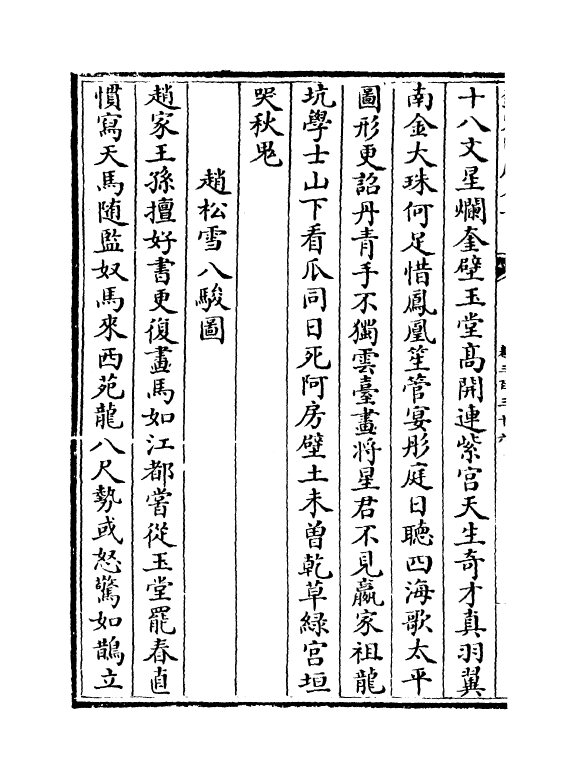 十八文星爛奎壁玉堂髙開連紫宫天生奇才真羽翼
南金大珠何足惜鳳凰笙管宴彤庭日聽四海歌太平
圖形更詔丹青手不獨雲臺畫将星君不見嬴家祖龍
坑學士山下看瓜同日死阿房壁土未曽乾草緑宫垣
哭秋鬼
趙松雪八駿圖
趙家王孫擅好書更復畫馬如江都嘗從玉堂罷春直
慣寫天馬随監奴馬來西苑龍八尺勢或怒驚如鵲立